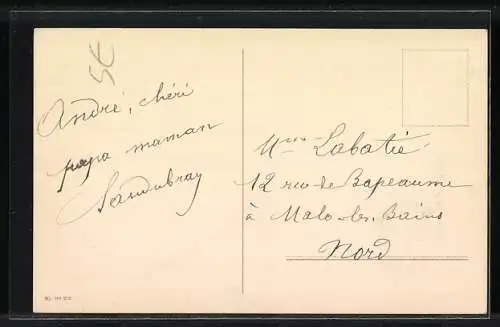 5€
André, chéri
papa maman
Sandubray
Mme Labatié
12 rue de Bapeaume
à Malo-les-Bains
Nord